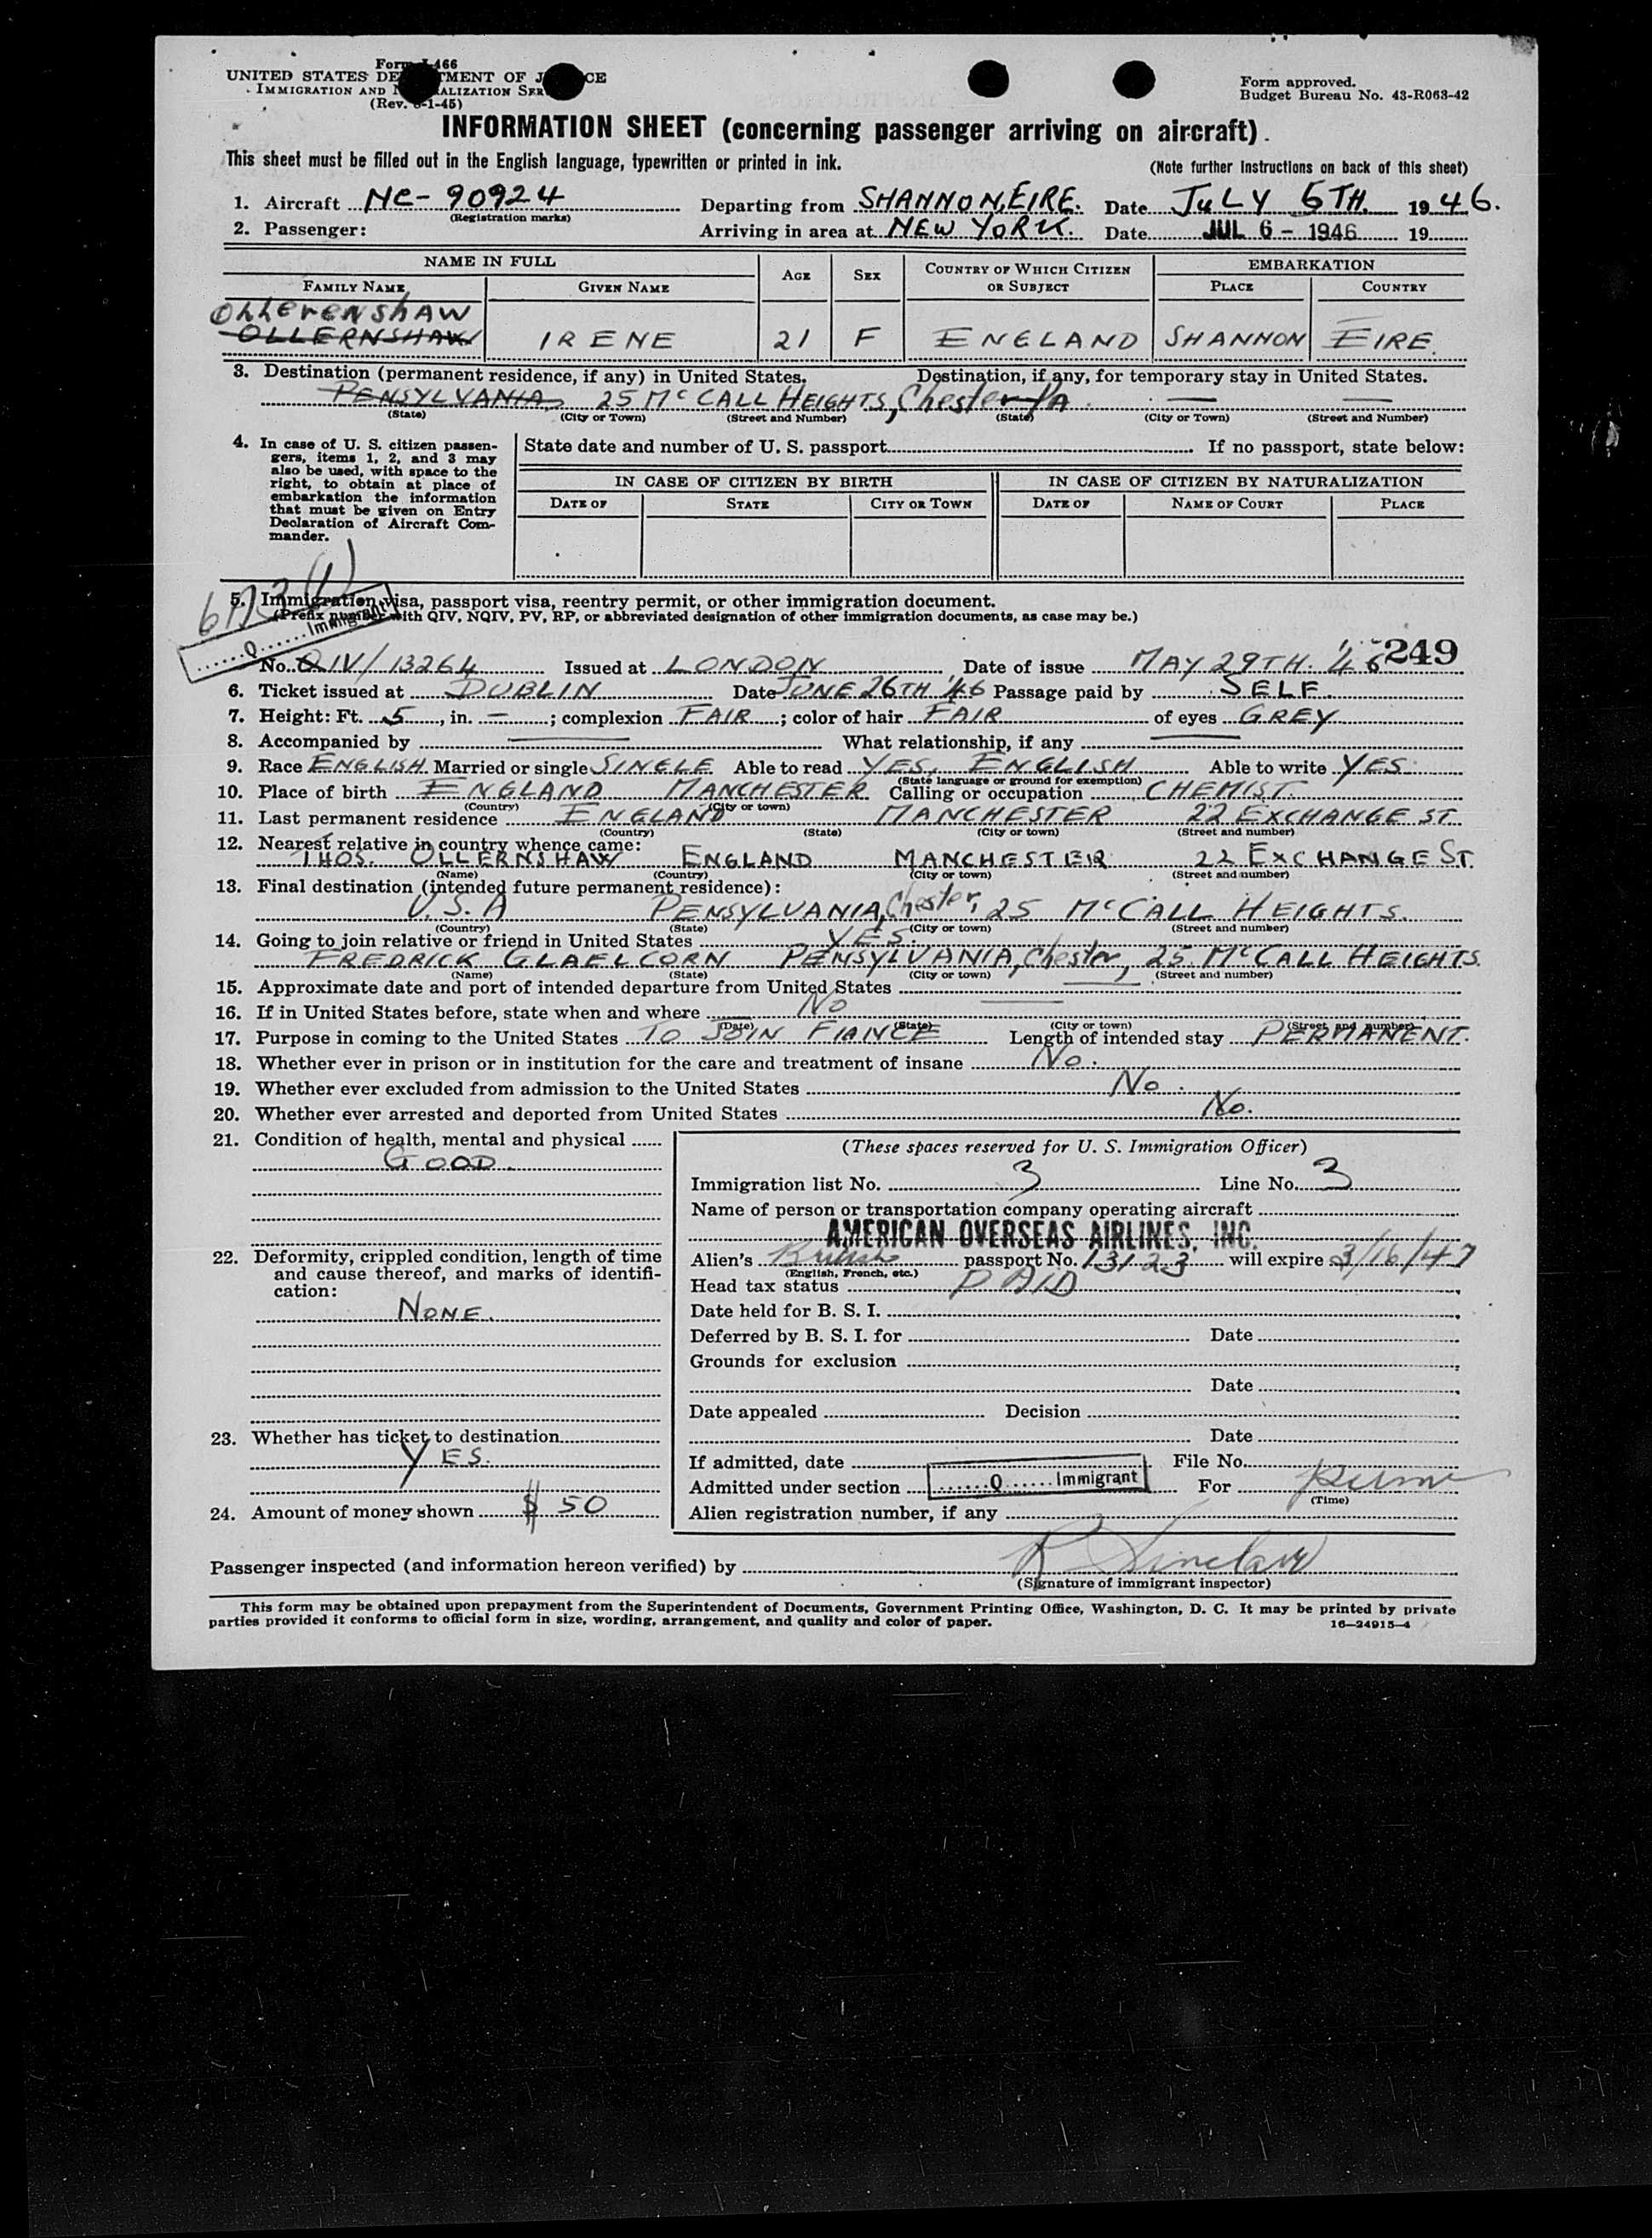 Form I-466
UNITED STATES DEPARTMENT OF JUSTICE
IMMIGRATION AND NATURALIZATION SERVICE
(Rev. 6-1-45)
Form approved.
Budget Bureau No. 43-R063-42
INFORMATION SHEET (concerning passenger arriving on aircraft).
This sheet must be filled out in the English language, typewritten or printed in ink. (Note further instructions on back of this sheet)
1. Aircraft NC-90924 Departing from SHANNON, EIRE. Date JULY 5TH. 1946.
(Registration marks)
2. Passenger: Arriving in area at NEW YORK. Date JUL 6 - 1946 19
NAME IN FULL AGE SEX COUNTRY OF WHICH CITIZEN OR SUBJECT EMBARKATION
FAMILY NAME GIVEN NAME PLACE COUNTRY
OLLERENSHAW
OLLERNSHAW IRENE 21 F ENGLAND SHANNON EIRE.
3. Destination (permanent residence, if any) in United States. Destination, if any, for temporary stay in United States.
PENSYLVANIA, 25 McCALL HEIGHTS, Chester PA — —
(State) (City or Town) (Street and Number) (State) (City or Town) (Street and Number)
4. In case of U. S. citizen passengers, items 1, 2, and 3 may also be used, with space to the right, to obtain at place of embarkation the information that must be given on Entry Declaration of Aircraft Commander.
State date and number of U. S. passport If no passport, state below:
IN CASE OF CITIZEN BY BIRTH IN CASE OF CITIZEN BY NATURALIZATION
DATE OF STATE CITY OR TOWN DATE OF NAME OF COURT PLACE
5. Immigration visa, passport visa, reentry permit, or other immigration document.
(Prefix number with QIV, NQIV, PV, RP, or abbreviated designation of other immigration documents, as case may be.)
Q Immigrant
249
No. QIV/13264 Issued at LONDON Date of issue MAY 29TH. '46
6. Ticket issued at DUBLIN Date JUNE 26TH '46 Passage paid by SELF.
7. Height: Ft. 5, in. —; complexion FAIR; color of hair FAIR of eyes GREY
8. Accompanied by — What relationship, if any —
9. Race ENGLISH Married or single SINGLE Able to read YES, ENGLISH Able to write YES
(State language or ground for exemption)
10. Place of birth ENGLAND MANCHESTER Calling or occupation CHEMIST
(Country) (City or town)
11. Last permanent residence ENGLAND MANCHESTER 22 EXCHANGE ST.
(Country) (State) (City or town) (Street and number)
12. Nearest relative in country whence came:
THOS. OLLERNSHAW ENGLAND MANCHESTER 22 EXCHANGE ST.
(Name) (Country) (City or town) (Street and number)
13. Final destination (intended future permanent residence):
U.S.A PENSYLVANIA, Chester, 25 McCALL HEIGHTS.
(Country) (State) (City or town) (Street and number)
14. Going to join relative or friend in United States YES.
FREDRICK GLAELCORN PENSYLVANIA, Chester, 25 McCALL HEIGHTS.
(Name) (State) (City or town) (Street and number)
15. Approximate date and port of intended departure from United States —
16. If in United States before, state when and where No
(Date) (State) (City or town) (Street and number)
17. Purpose in coming to the United States TO JOIN FIANCE Length of intended stay PERMANENT.
18. Whether ever in prison or in institution for the care and treatment of insane No.
19. Whether ever excluded from admission to the United States No.
20. Whether ever arrested and deported from United States No.
21. Condition of health, mental and physical
GOOD.
22. Deformity, crippled condition, length of time and cause thereof, and marks of identification:
NONE.
23. Whether has ticket to destination
YES.
24. Amount of money shown $ 50
(These spaces reserved for U. S. Immigration Officer)
Immigration list No. 3 Line No. 3
Name of person or transportation company operating aircraft
AMERICAN OVERSEAS AIRLINES, INC.
Alien's British passport No. 13123 will expire 3/16/47
(English, French, etc.)
Head tax status PAID
Date held for B. S. I.
Deferred by B. S. I. for Date
Grounds for exclusion
Date
Date appealed Decision
Date
If admitted, date File No.
Admitted under section Q Immigrant For Perm
(Time)
Alien registration number, if any
Passenger inspected (and information hereon verified) by R Sinclair
(Signature of immigrant inspector)
This form may be obtained upon prepayment from the Superintendent of Documents, Government Printing Office, Washington, D. C. It may be printed by private
parties provided it conforms to official form in size, wording, arrangement, and quality and color of paper.
16—24915-4